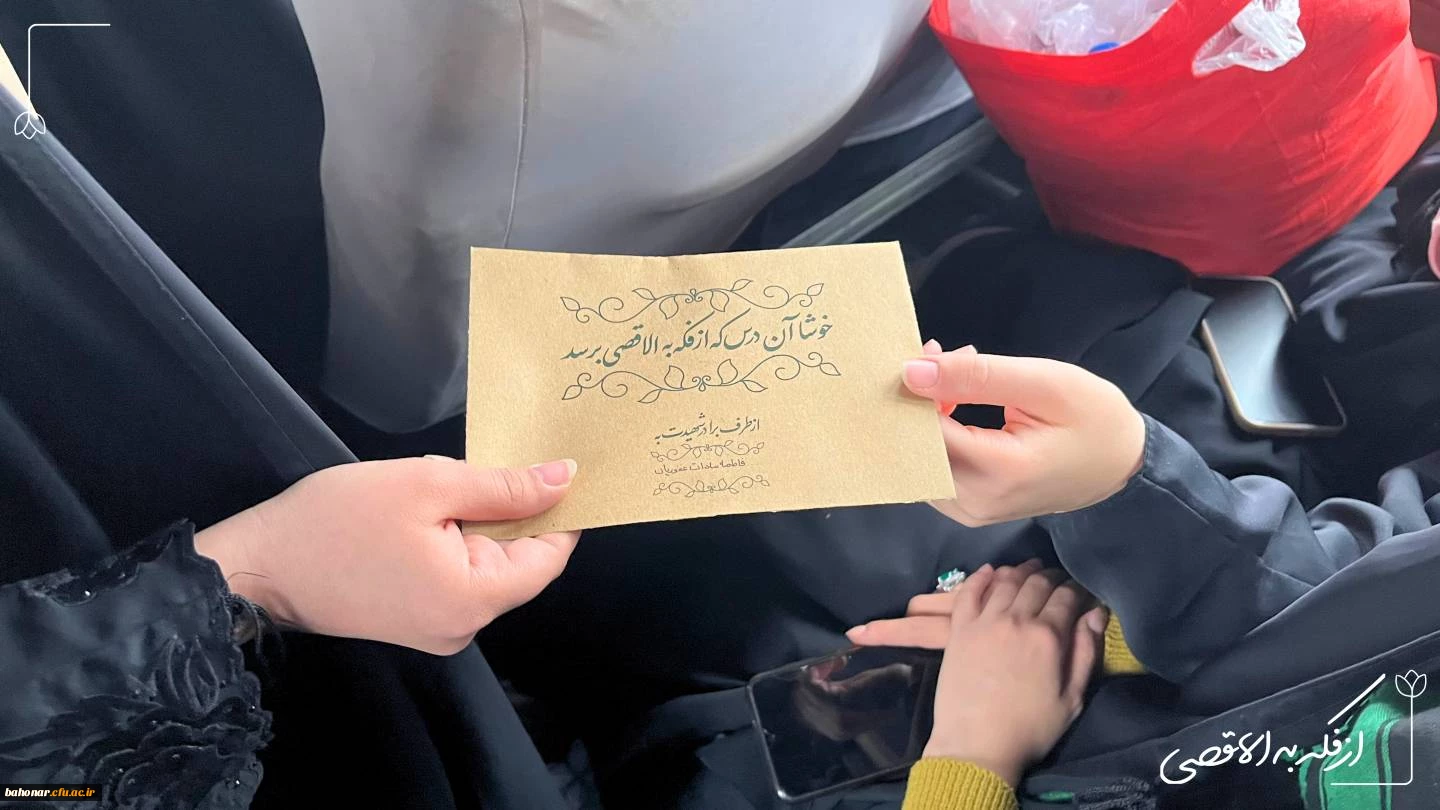 خوشا آن درس که از فکه به الاقصی برسد
از طرف برادر شهیدت به
فاطمه سادات
از فکه به الاقصی
bahonar.cfu.ac.ir